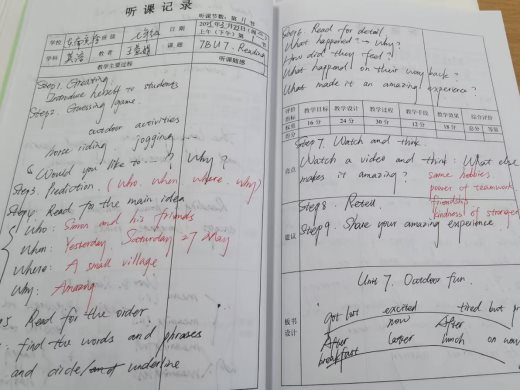 听课记录
听课节数:第 11 节
学校
班级
日期
学科 英语
教者
课题 7B U7. Reading
上午(下午)第 节
教学主要过程
听课随感
Step1. Greeting
Introduce herself to students
Step2. Guessing game.
outdoor activities
horse riding. jogging ...
Would you like to ... ? Why?
Step3. Prediction. (who. when. where. why)
Step4. Read for the main idea
Who: Simon and his friends
When: Yesterday, Saturday 27 May
Where: A small village
Why: Amazing
5. Read for the order.
find the words and phrases
and circle/ underline
Step6. Read for detail
What happened? → Why?
How did they feel?
What happened on their way back?
What made it an amazing experience?
评价指标
教学目标
教学设计
教学过程
教学手段
教学效果
综合评价
标准
16 分
24 分
30 分
12 分
18 分
总分
等第
Step7. Watch and think.
Watch a video and think: What else
makes it amazing?
same hobbies
power of teamwork
friendship
kindness of strangers
Step8. Retell
建议
Step9. Share your amazing experience
板书设计
Unit 7. Outdoor fun.
Got lost
excited
tired but
After breakfast
now
later
After lunch
on